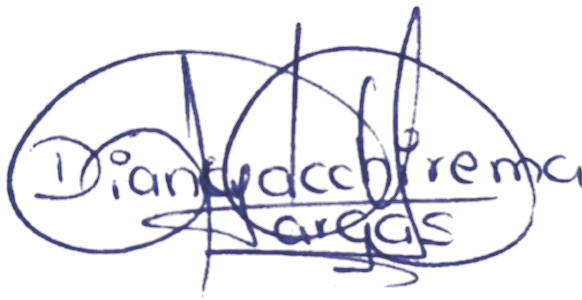 Diana Yacchirema
Vargas